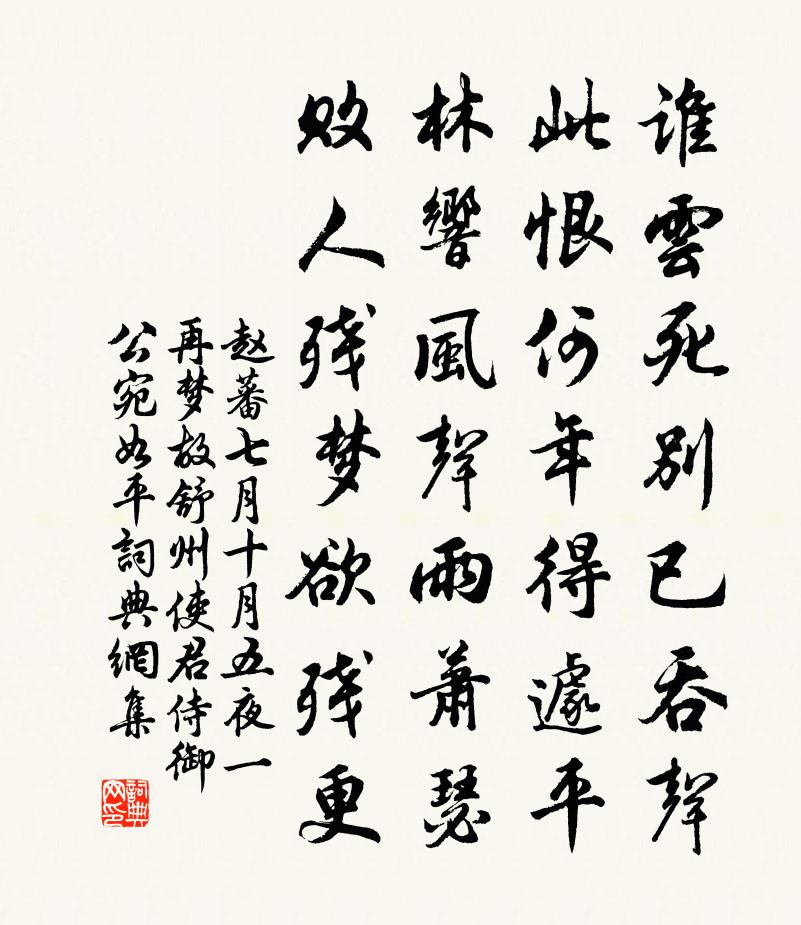 誰雲死別已吞聲
此恨何年得遽平
林響風聲雨蕭瑟
敗人残梦欲残更
赵蕃七月十月五夜一
再梦故舒州使君侍御
公宛如平詞典網集
詞典網印